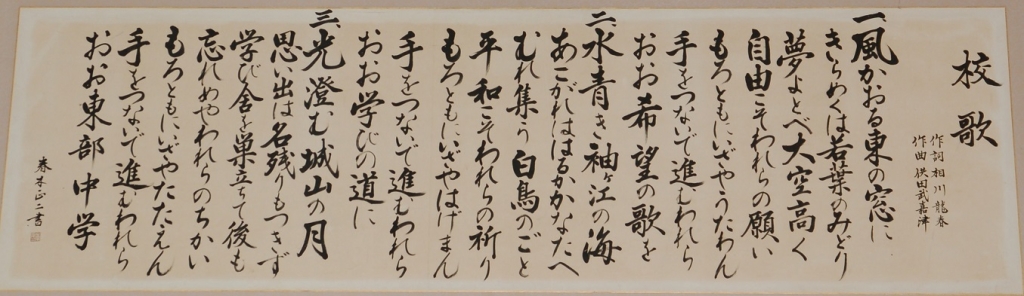 校歌
作詞 相川龍春
作曲 供田武嘉津
一、風かおる東の窓に
きらめくは若葉のみどり
夢よとべ大空高く
自由こそわれらの願い
もろともにいざやうたわん
手をつないで進むわれら
おお希望の歌を
二、水青き袖ヶ江の海
あこがれははるかかなたへ
むれ集う白鳥のごと
平和こそわれらの祈り
もろともにいざやはげまん
手をつないで進むわれら
おお学びの道に
三、光澄む城山の月
思い出は名残りもつきず
学び舎を巣立ちて後も
忘れめやわれらのちかい
もろともにいざやたたえん
手をつないで進むわれら
おお東部中学
正二書